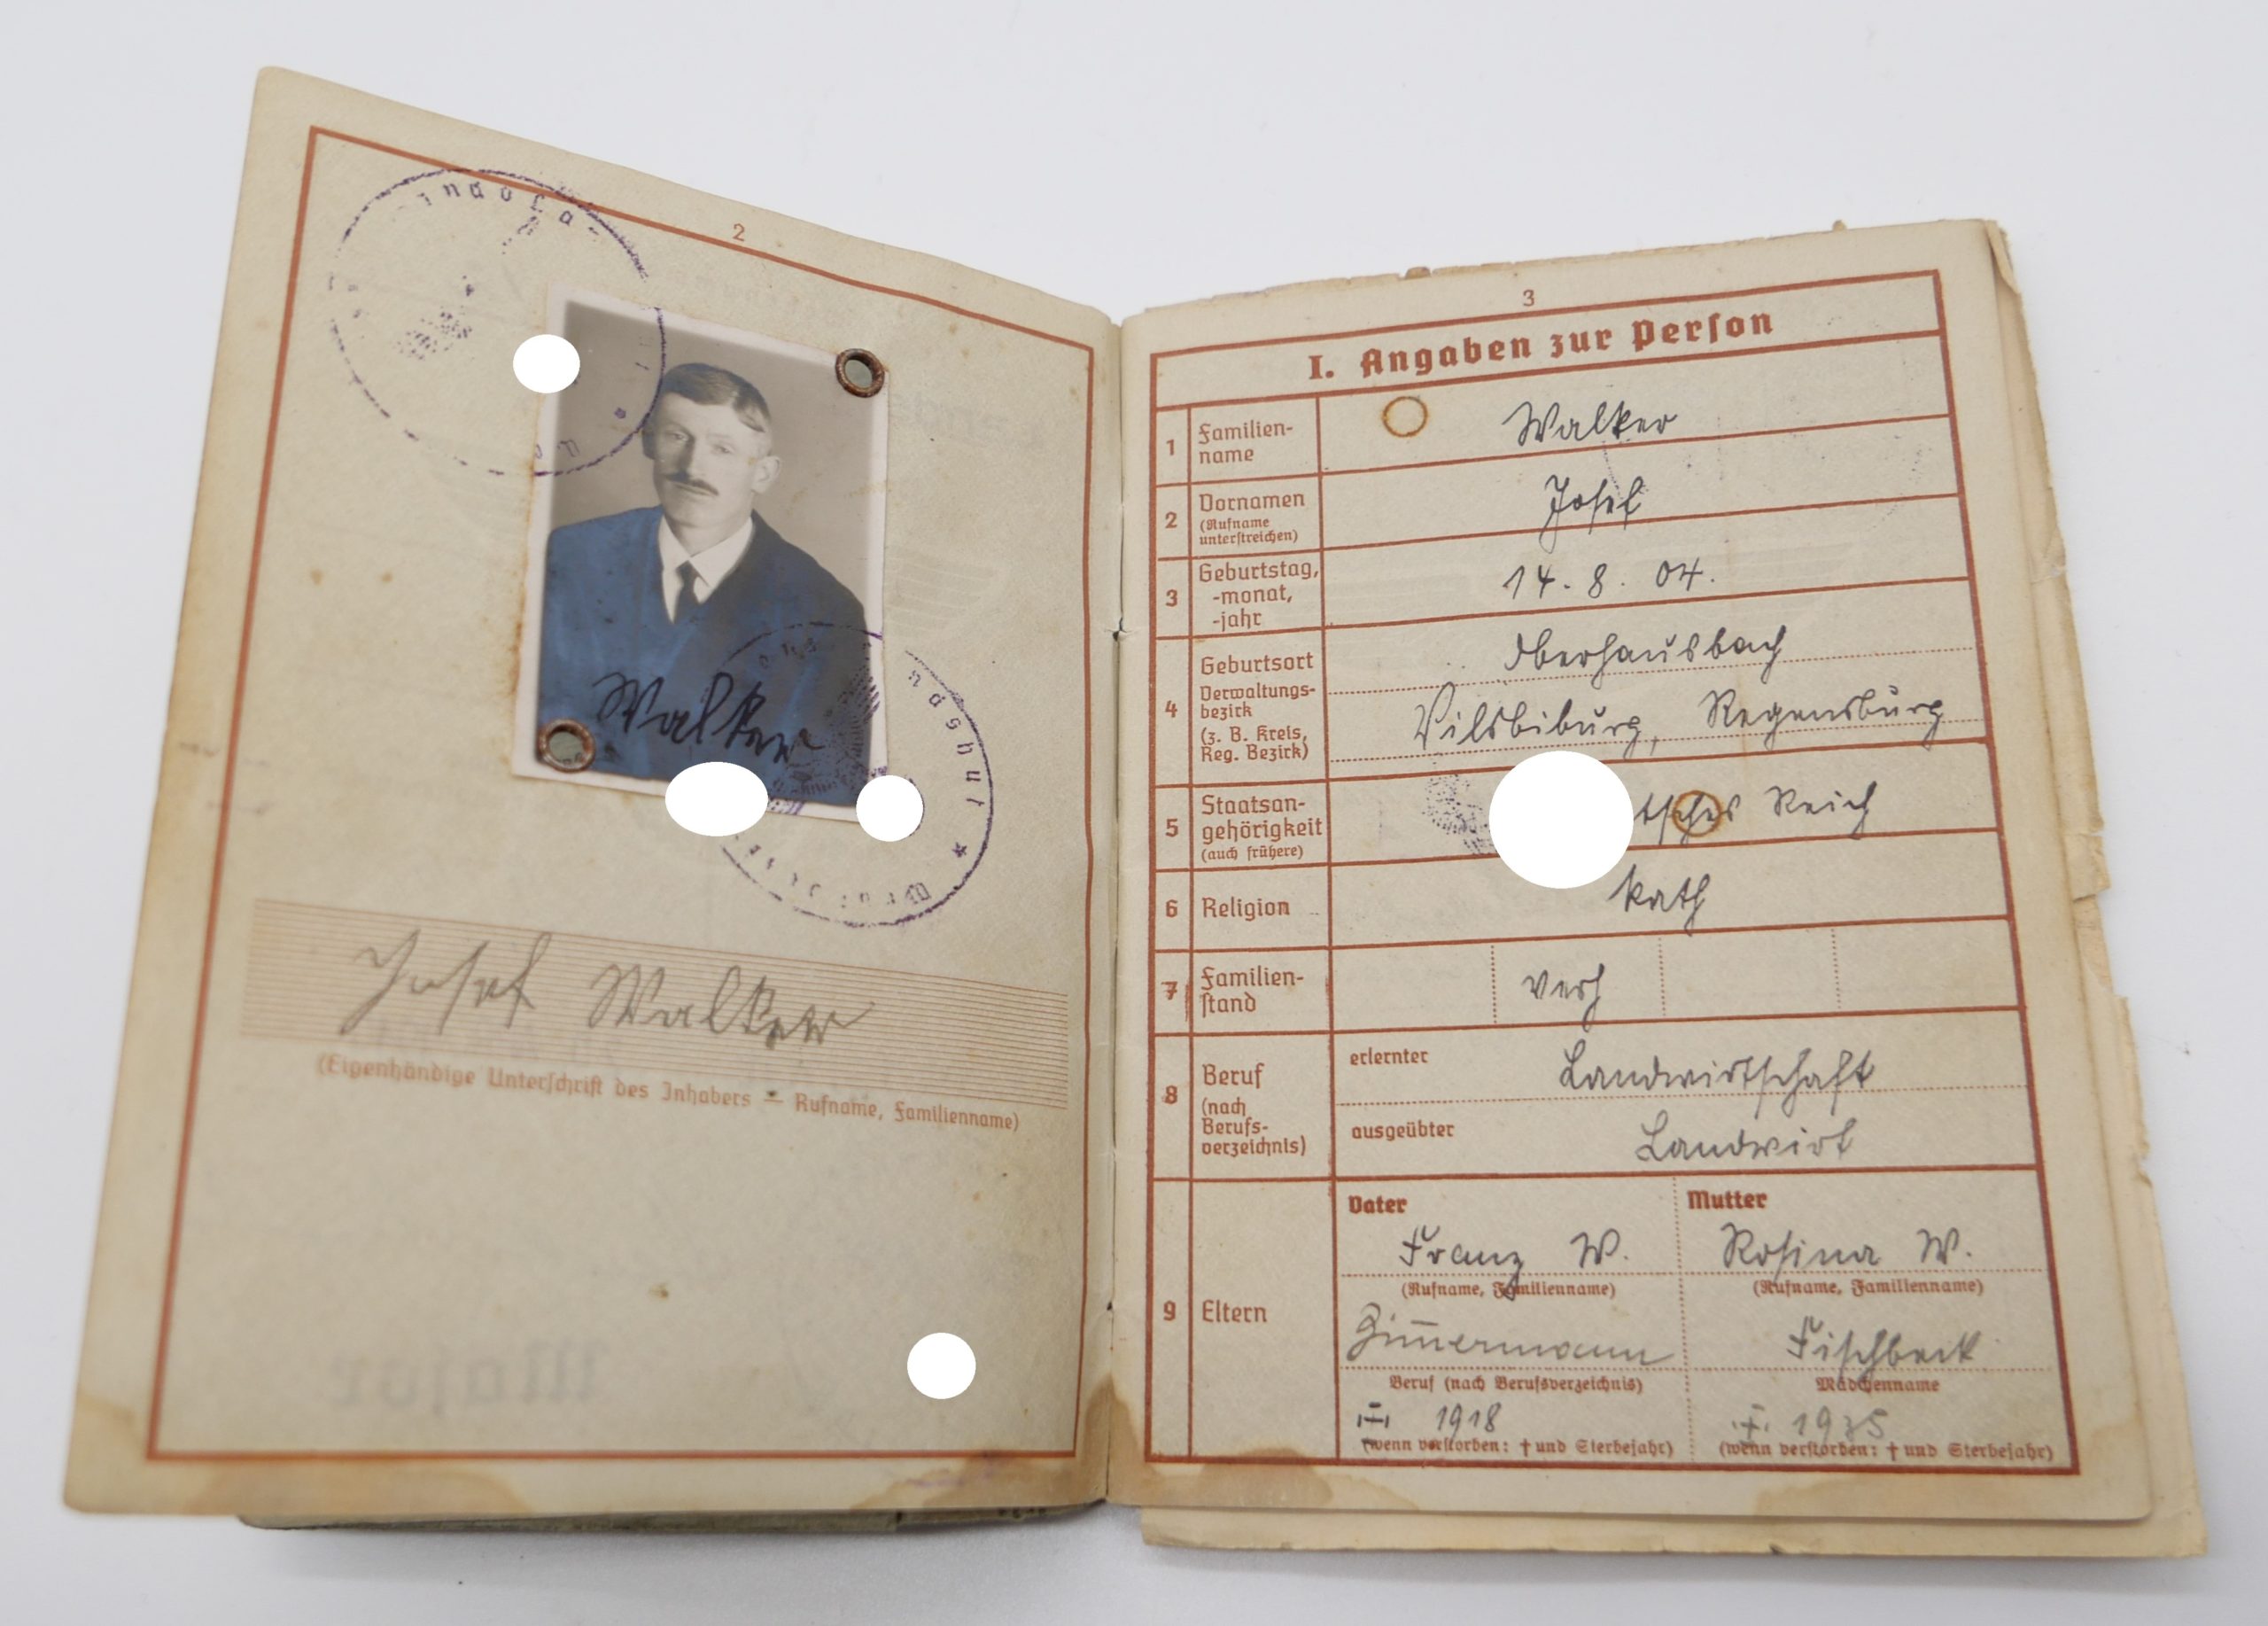 2
Walker
Josef Walker
(Eigenhändige Unterschrift des Inhabers — Rufname, Familienname)
3
I. Angaben zur Person
1 Familien-
name
Walker
2 Vornamen
(Rufname
unterstreichen)
Josef
3 Geburtstag,
-monat,
-jahr
14. 8. 04.
4 Geburtsort
Verwaltungs-
bezirk
(z. B. Kreis,
Reg. Bezirk)
Oberhausbach
Vilsbiburg, Regensburg
5 Staatsan-
gehörigkeit
(auch frühere)
tsches Reich
6 Religion
kath
7 Familien-
stand
verh
8 Beruf
(nach
Berufs-
verzeichnis)
erlernter Landwirtschaft
ausgeübter Landwirt
9 Eltern
Vater
Franz W.
(Rufname, Familienname)
Zim̄ermann
Beruf (nach Berufsverzeichnis)
1918
(wenn verstorben: † und Sterbejahr)
Mutter
Rosina W.
(Rufname, Familienname)
Fischbeck
Mädchenname
1935
(wenn verstorben: † und Sterbejahr)